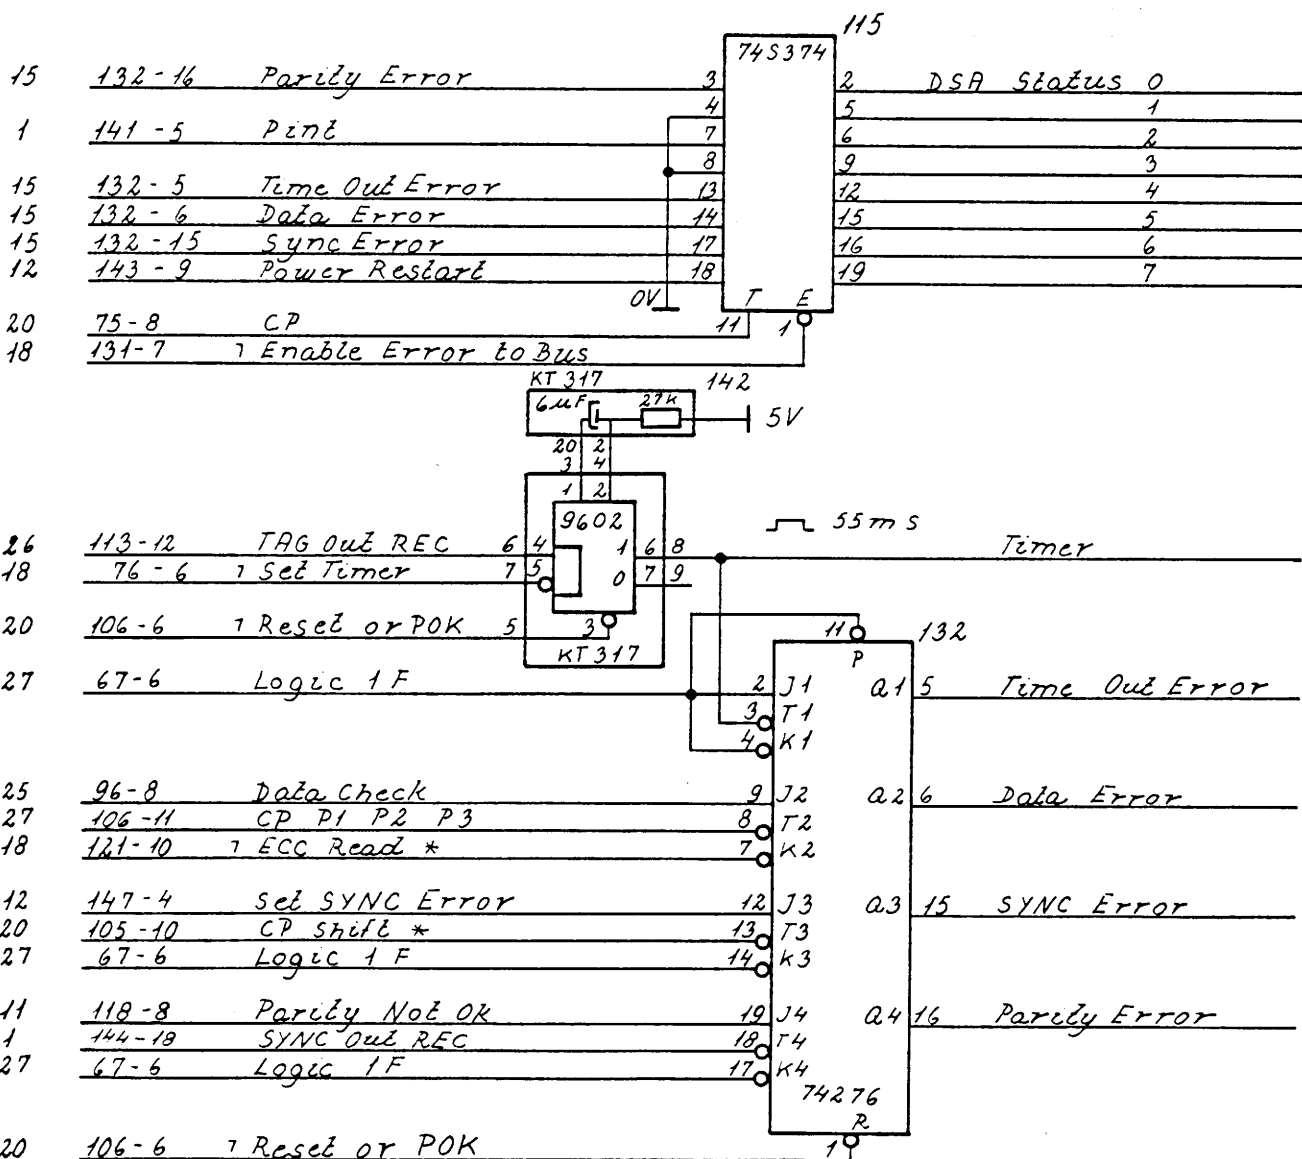 115
74S374
15 132-16 Parity Error 3 2 DSA Status 0
4 5 1
1 141-5 Pint 7 6 2
8 9 3
15 132-5 Time Out Error 13 12 4
15 132-6 Data Error 14 15 5
15 132-15 Sync Error 17 16 6
12 143-9 Power Restart 18 19 7
0V T E
20 75-8 CP 11 1
18 131-7 ¬ Enable Error to Bus
KT 317 142
6µF 27k 5V
20 2
3 4
1 2
9602 55ms
26 113-12 TAG Out REC 6 4 1 6 8 Timer
18 76-6 ¬ Set Timer 7 5 0 7 9
20 106-6 ¬ Reset or POK 5 3 11 132
KT 317 P
27 67-6 Logic 1 F 2 J1 Q1 5 Time Out Error
3 T1
4 K1
25 96-8 Data Check 9 J2 Q2 6 Data Error
27 106-11 CP P1 P2 P3 8 T2
18 121-10 ¬ ECC Read * 7 K2
12 147-4 Set SYNC Error 12 J3 Q3 15 SYNC Error
20 105-10 CP Shift * 13 T3
27 67-6 Logic 1 F 14 K3
11 118-8 Parity Not Ok 19 J4 Q4 16 Parity Error
1 144-18 SYNC Out REC 18 T4
27 67-6 Logic 1F 17 K4
74276
R
20 106-6 ¬ Reset or POK 1